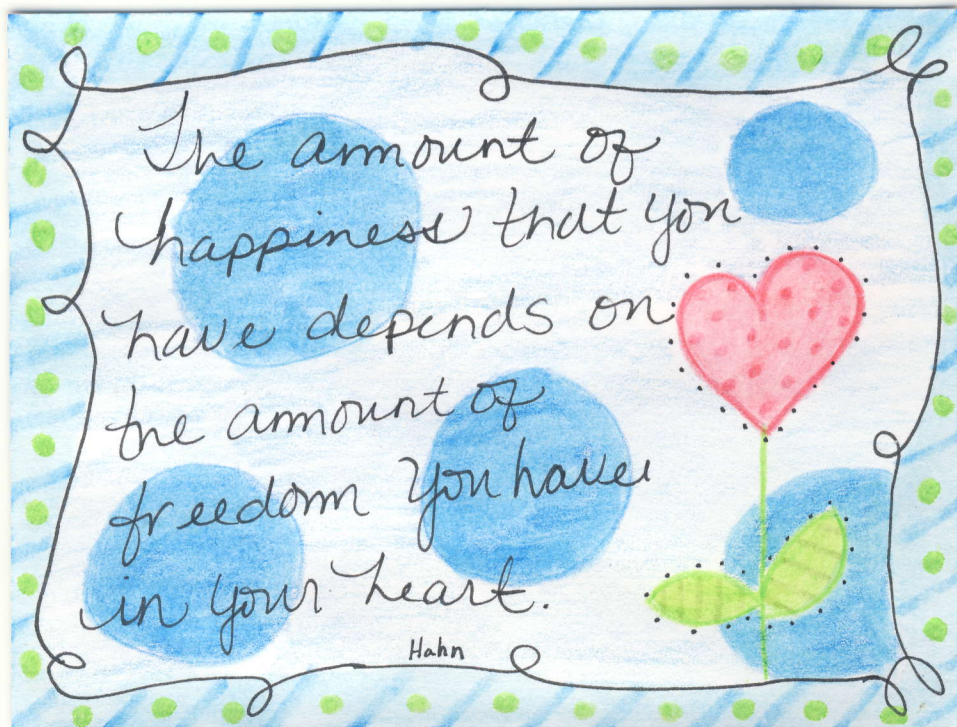 The amount of
happiness that you
have depends on
the amount of
freedom you have
in your heart.
Hahn